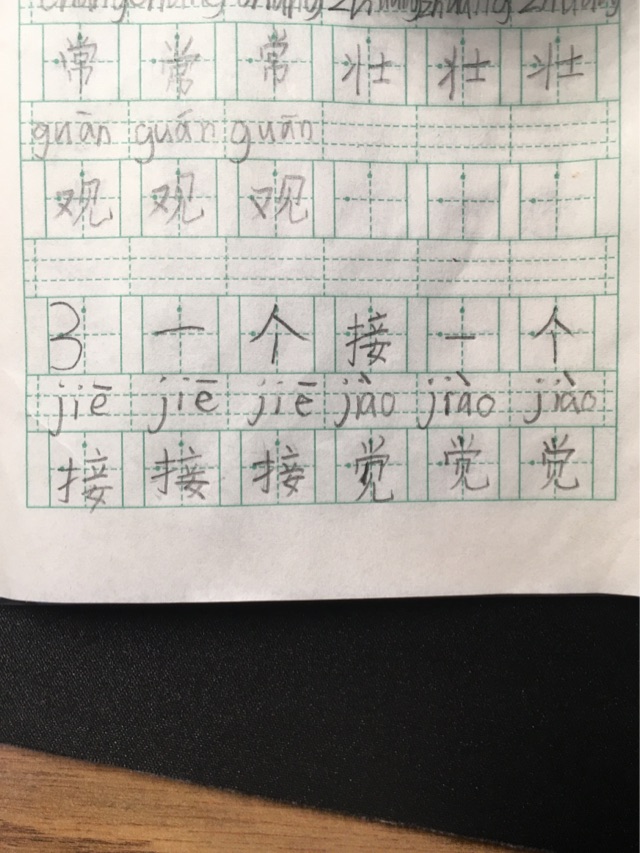 常 常 常 壮 壮 壮
guān guān guān
观 观 观
3 一 个 接 一 个
jiē jiē jiē jiào jiào jiào
接 接 接 觉 觉 觉